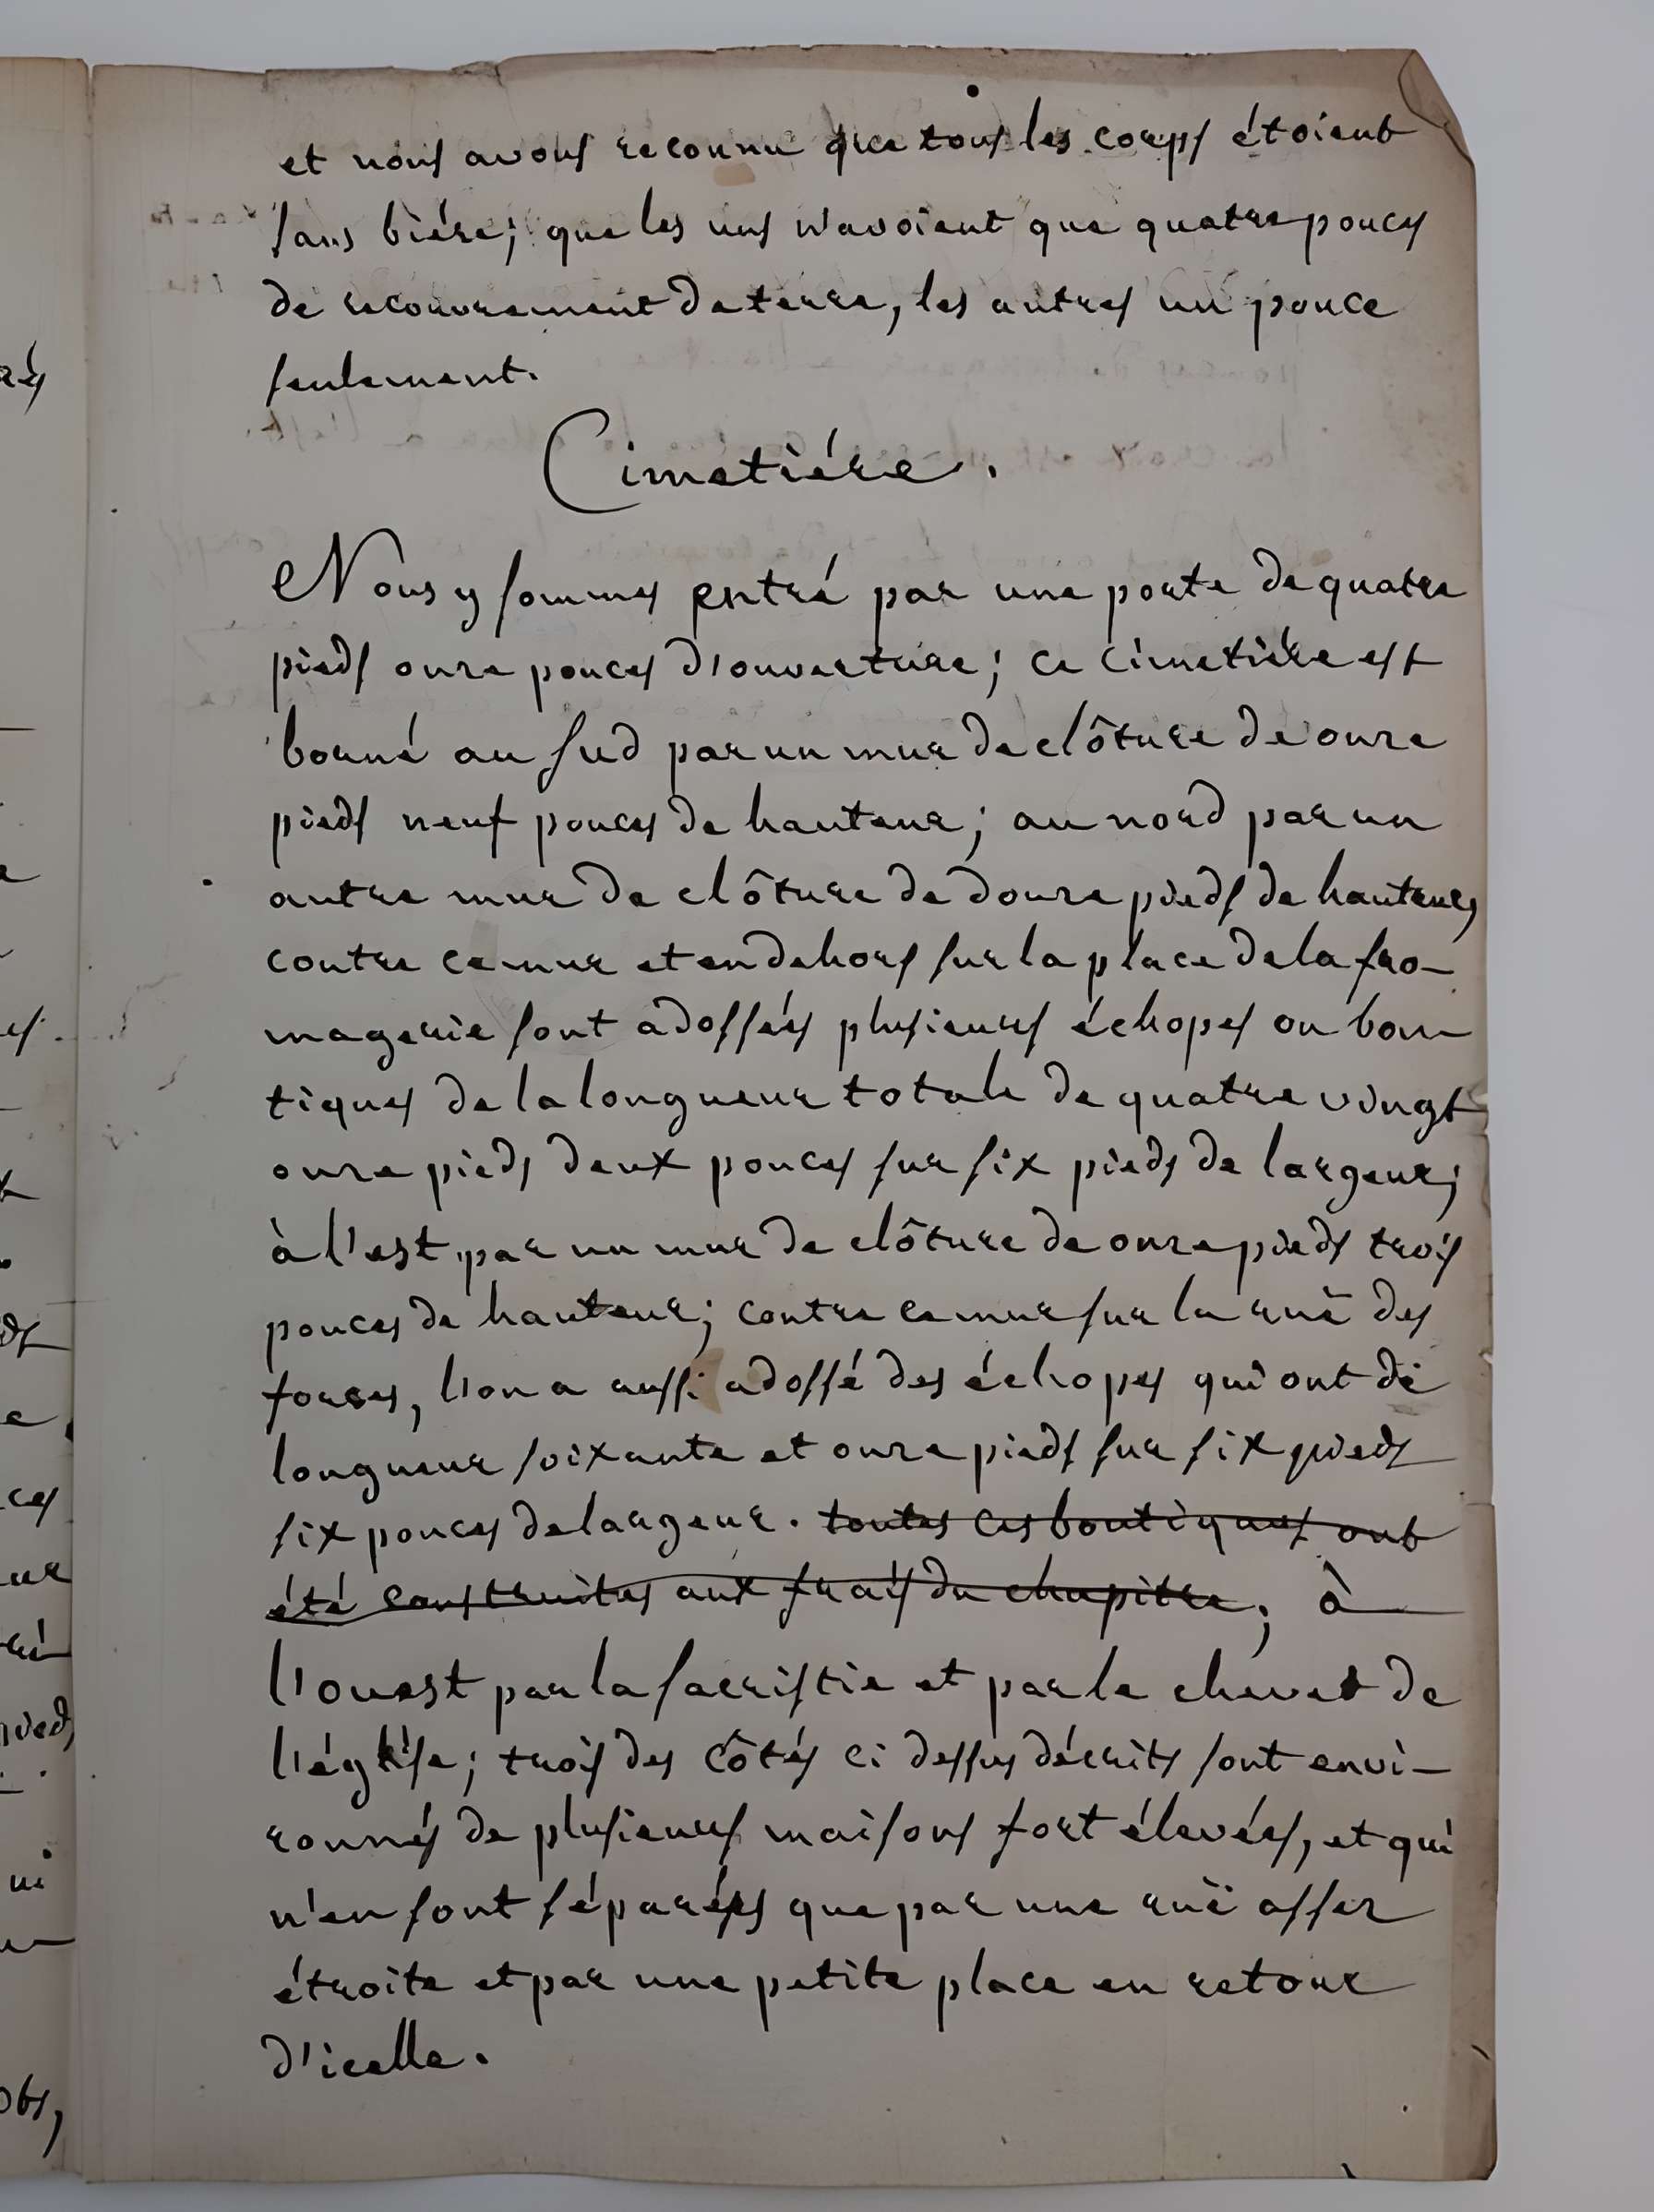 et nous avons reconnu que tous les corps étoient
sans biére; que les uns n'avoient que quatre pouces
de recouvrement de terre, les autres un pouce
seulement.
Cimetiére.
Nous y sommes entré par une porte de quatre
pieds onze pouces d'ouverture; ce cimetiére est
borné au sud par un mur de clôture de onze
pieds neuf pouces de hauteur; au nord par un
autre mur de clôture de douze pieds de hauteur,
contre ce mur et en dehors sur la place de la fro-
magerie sont adossés plusieurs échopes ou bou-
tiques de la longueur totale de quatre vingt
onze pieds deux pouces sur six pieds de largeur;
à l'est par un mur de clôture de onze pieds trois
pouces de hauteur; contre ce mur sur la ruë des
forces, l'on a aussi adossé des échopes qui ont de
longueur soixante et onze pieds sur six pieds
six pouces de largeur. toutes ces boutiques ont
été construites aux frais du chapitre; à
l'ouest par la sacristie et par le chevet de
l'église; trois des côtés ci dessus décrits sont envi-
ronnés de plusieurs maisons fort élevées, et qui
n'en sont séparées que par une ruë assez
étroite et par une petite place en retour
d'icelle.